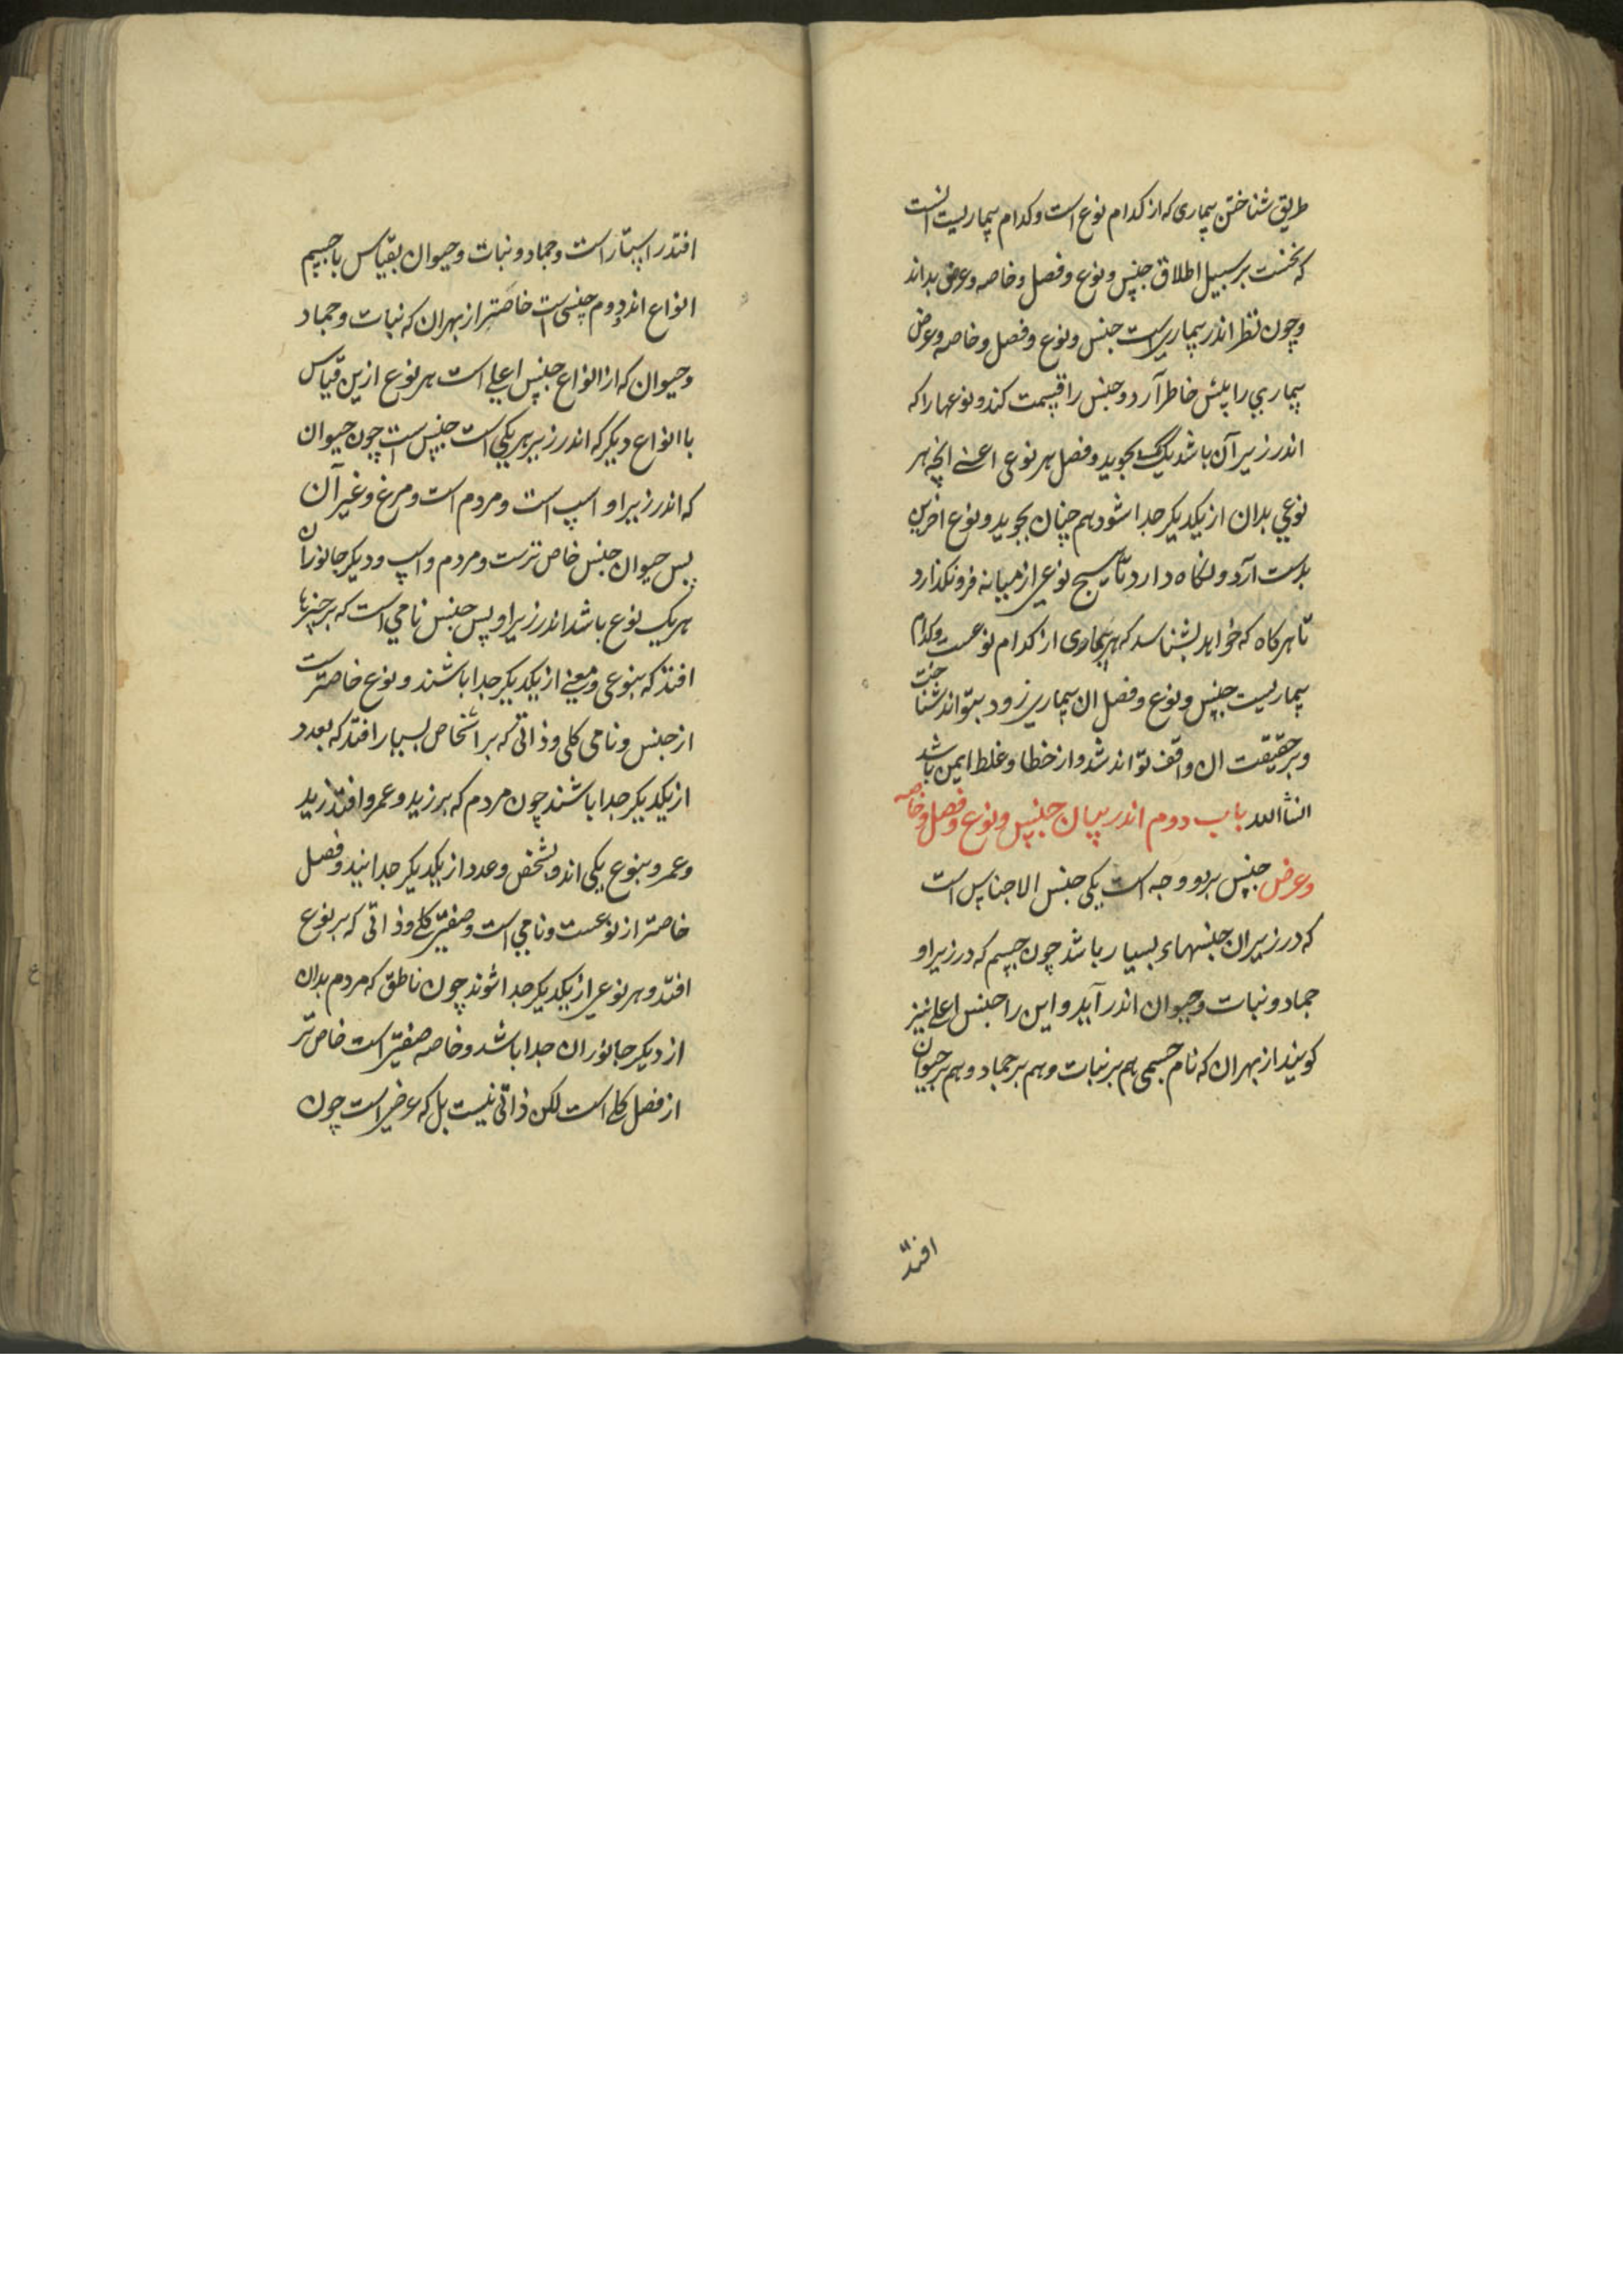 طریق شناختن بیماری که از کدام نوع است و کدام بیماریست انست
که نخست بر سبیل اطلاق جنس و نوع و فصل و خاصه و عرض بداند
و چون نظر اندر بیماریست جنس و نوع و فصل و خاصه و عرض
بیماري را پیش خاطر آرد و جنس را قسمت کند و نوعها را که
اندر زیر آن باشد یک یک بجوید و فصل هر نوعی اعنے انچه هر
نوعي بدان از یکدیکر جدا شود هم چنان بجوید و نوع اخرین
بدست آرد و نکاه دارد تا هیچ نوعی از میانه فرو نکذارد
تا هرکاه که خواهد بشناسد که هر بیماری از کدام نوعست و کدام
بیماریست جنس و نوع و فصل ان بیماري زود بتواند شناخت
و بر حقیقت ان واقف تواند شد و از خطا و غلط ایمن باشد
انشاالله باب دوم اندر بیان جنس و نوع و فصل و خاصه
و عرض جنس بر دو وجه است یکی جنس الاجناس است
که در زیر ان جنسهاء بسیار باشد چون جسم که در زیر او
جماد و نبات و حیوان اندر آید و این را جنس اعلے نیز
کویند از بهر ان که نام جسمی هم بر نبات و هم بر جماد و هم بر حیوان
افتد
افتد را است و جماد و نبات و حیوان بقیاس با جسم
انواع اند دوم جنسی است خاصتر از بهر ان که نبات و جماد
و حیوان که از انواع جنس اعلے است هر نوع ازین قیاس
با انواع دیکر که اندر زیر هر یکي است جنس است چون حیوان
که اندر زیر او اسپ است و مردم است و مرغ و غیر آن
پس حیوان جنس خاص ترست و مردم و اسپ و دیکر جانوران
هر یک نوع باشد اندر زیر او پس جنس نامي است که بر چیزها
افتد که بنوعی و معنے از یکدیکر جدا باشند و نوع خاصترست
از جنس و نامی کلی و ذاتی که بر اشخاص بسیار افتد که بعدد
از یکدیکر جدا باشند چون مردم که بر زید و عمرو افتد زید
و عمرو بنوع یکی اند و بشخص و عدد از یکدیکر جدا اند و فصل
خاصتر از نوعست و نامي است و صفتی کلے و ذاتی که بر نوع
افتد و هر نوعی از یکدیکر جدا شوند چون ناطق که مردم بدان
از دیکر جانوران جدا باشد و خاصه صفتی است خاص تر
از فصل کلے است لکن ذاتی نیست بل که عرضی است چون